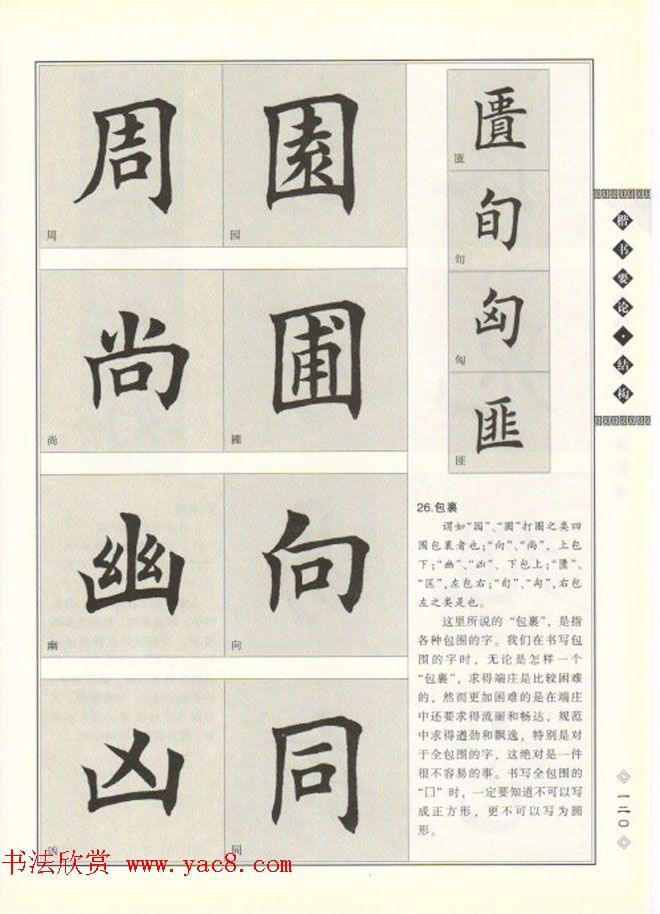 周
園
周
园
尚
圃
尚
圃
幽
向
幽
向
凶
同
凶
同
匱
匱
旬
旬
匈
匈
匪
匪
26.包裹
谓如“园”、“圃”打圈之类四
围包裹者也；“向”、“尚”，上包
下；“幽”、“凶”、下包上；“匮”、
“匡”,左包右；“旬”、“匈”,右包
左之类是也。
这里所说的“包裹”，是指
各种包围的字。我们在书写包
围的字时，无论是怎样一个
“包裹”，求得端庄是比较困难
的，然而更加困难的是在端庄
中还要求得流丽和畅达，规范
中求得遒劲和飘逸，特别是对
于全包围的字，这绝对是一件
很不容易的事。书写全包围的
“囗”时，一定要知道不可以写
成正方形，更不可以写为圆
形。
楷书要论·结构
一二〇
书法欣赏 www.yac8.com